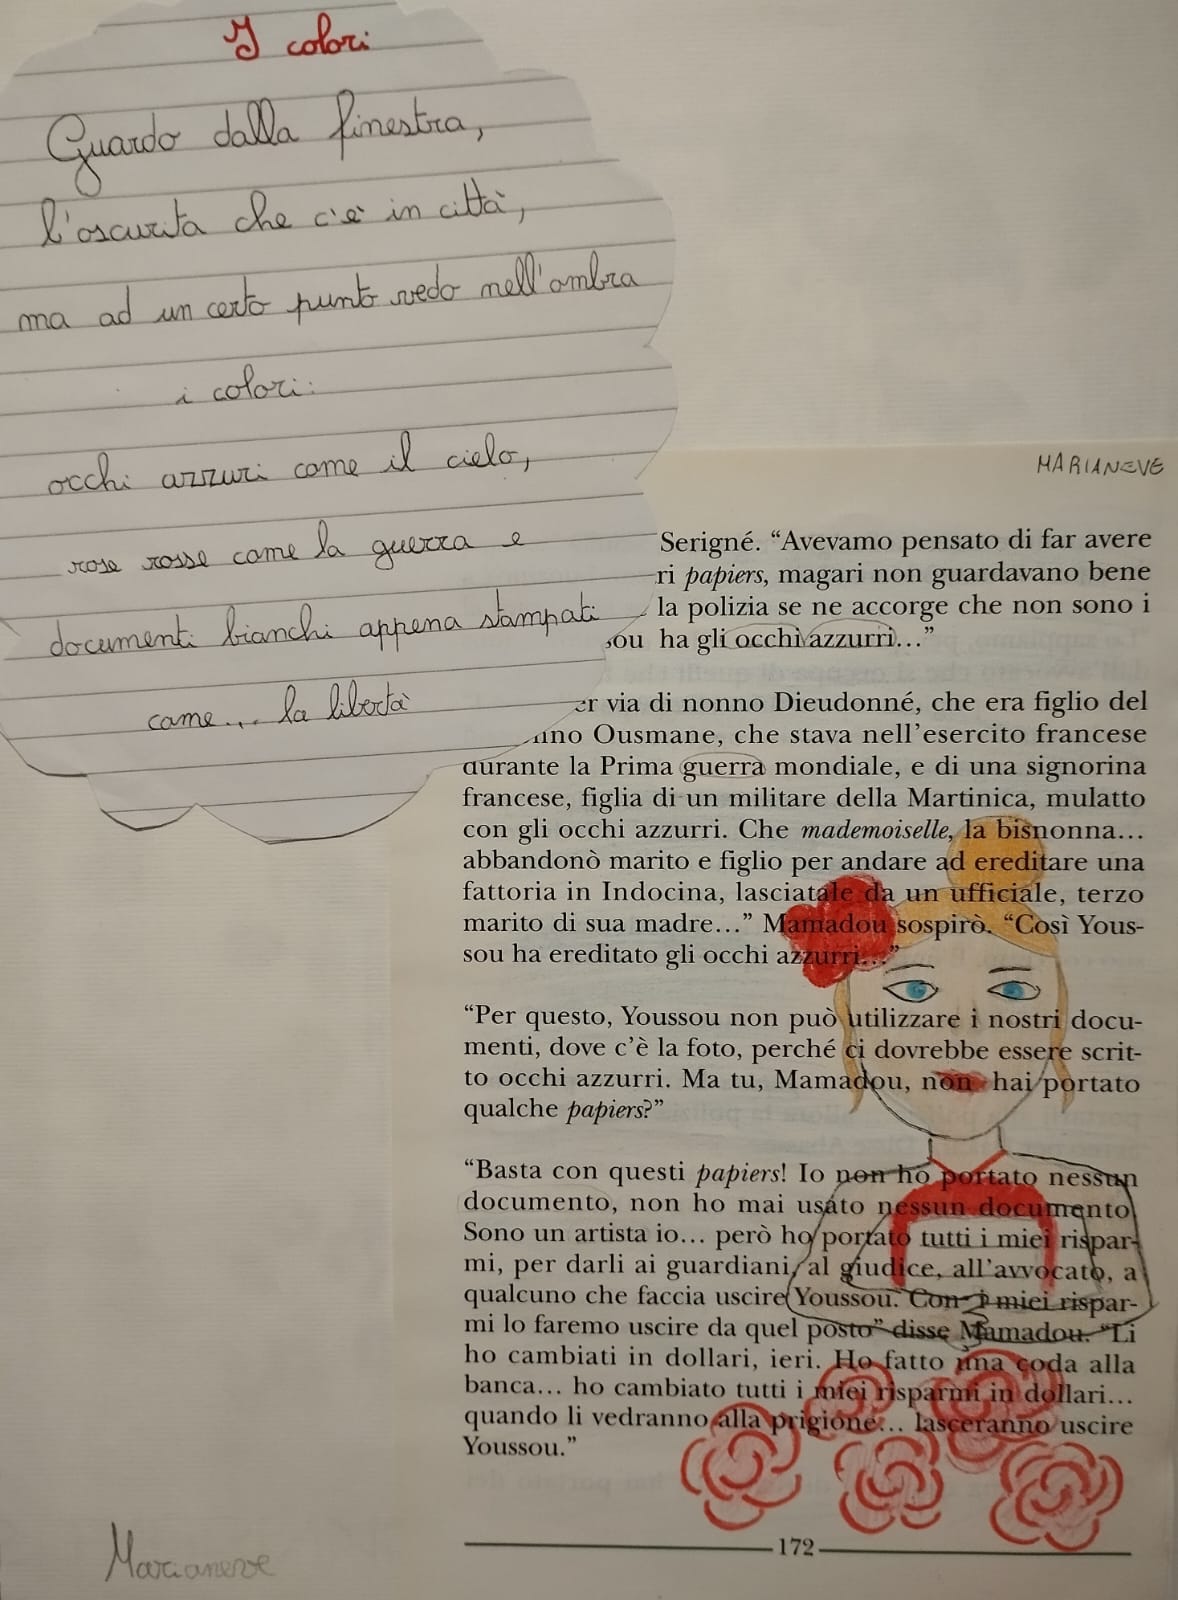 I colori
Guardo dalla finestra,
l'oscurita che c'è in città,
ma ad un certo punto vedo nell'ombra
i colori:
occhi azzuri come il cielo,
rose rosse come la guerra e
documenti bianchi appena stampati
come... la libertà
MARIANEVE
Serigné. “Avevamo pensato di far avere
ri papiers, magari non guardavano bene
la polizia se ne accorge che non sono i
sou ha gli occhi azzurri…”
er via di nonno Dieudonné, che era figlio del
nno Ousmane, che stava nell’esercito francese
durante la Prima guerra mondiale, e di una signorina
francese, figlia di un militare della Martinica, mulatto
con gli occhi azzurri. Che mademoiselle, la bisnonna…
abbandonò marito e figlio per andare ad ereditare una
fattoria in Indocina, lasciatale da un ufficiale, terzo
marito di sua madre…” Mamadou sospirò. “Così Yous-
sou ha ereditato gli occhi azzurri…”
“Per questo, Youssou non può utilizzare i nostri docu-
menti, dove c’è la foto, perché ci dovrebbe essere scrit-
to occhi azzurri. Ma tu, Mamadou, non hai portato
qualche papiers?”
“Basta con questi papiers! Io non ho portato nessun
documento, non ho mai usato nessun documento.
Sono un artista io… però ho portato tutti i miei rispar-
mi, per darli ai guardiani, al giudice, all’avvocato, a
qualcuno che faccia uscire Youssou. Con i miei rispar-
mi lo faremo uscire da quel posto” disse Mamadou. “Li
ho cambiati in dollari, ieri. Ho fatto una coda alla
banca… ho cambiato tutti i miei risparmi in dollari…
quando li vedranno alla prigione… lasceranno uscire
Youssou.”
172
Marianeve